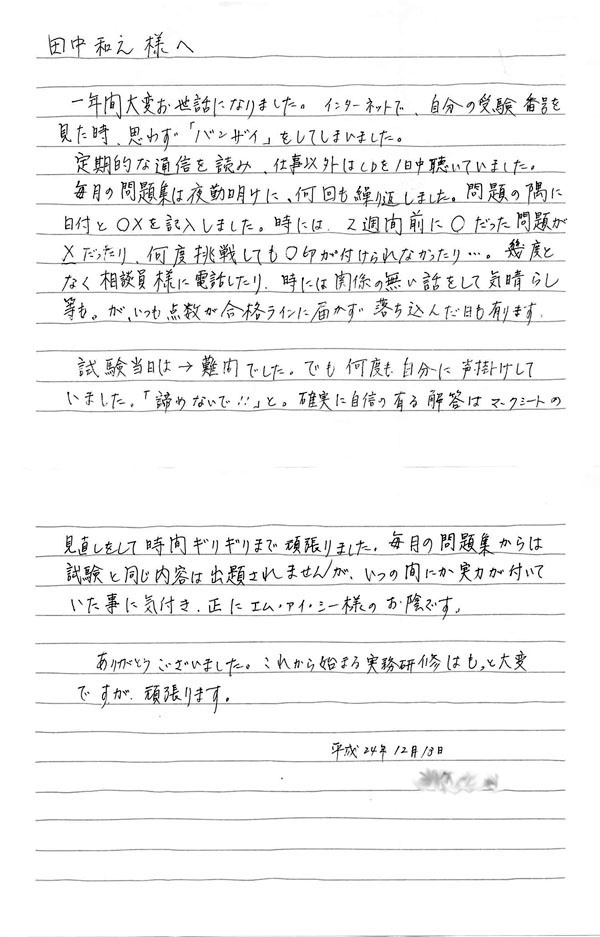 田中和え様へ
一年間大変お世話になりました。インターネットで、自分の受験番号を
見た時、思わず「バンザイ」をしてしまいました。
定期的な通信を読み、仕事以外はCDを1日中聴いていました。
毎月の問題集は夜勤明けに、何回も繰り返しました。問題の隅に
日付と〇Xを記入しました。時には、2週間前に〇だった問題が
Xだったり、何度挑戦しても〇印が付けられなかったり…。幾度と
なく相談員様に電話したり、時には関係の無い話をして気晴らし
等も。が、いつも点数が合格ラインに届かず落ち込んだ日も有ります。
試験当日は→難関でした。でも何度も自分に声掛けして
いました。「諦めないで!!」と。確実に自信の有る解答はマークシートの
見直しをして時間ギリギリまで頑張りました。毎月の問題集からは
試験と同じ内容は出題されませんが、いつの間にか実力が付いて
いた事に気付き、正にエム・アイ・シー様のお陰です。
ありがとうございました。これから始まる実務研修はもっと大変
ですが、頑張ります。
平成24年12月13日